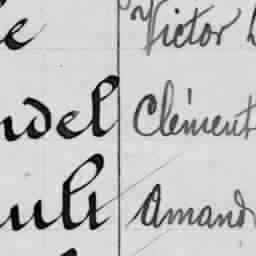 Victor
ndel Clément
ult Amand